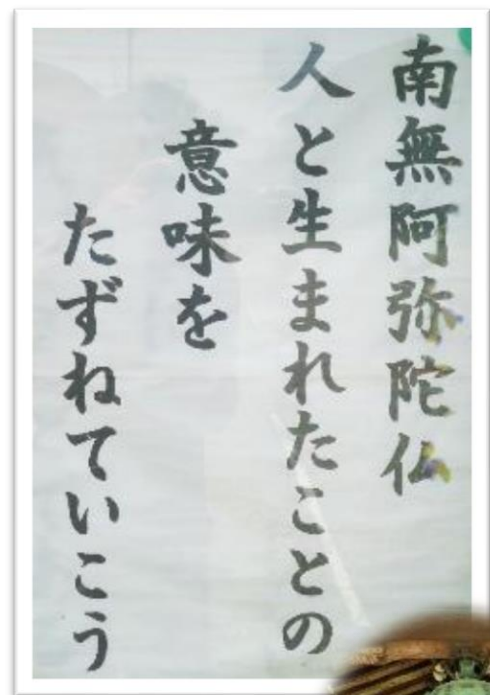 南無阿弥陀仏
人と生まれたことの
意味を
たずねていこう